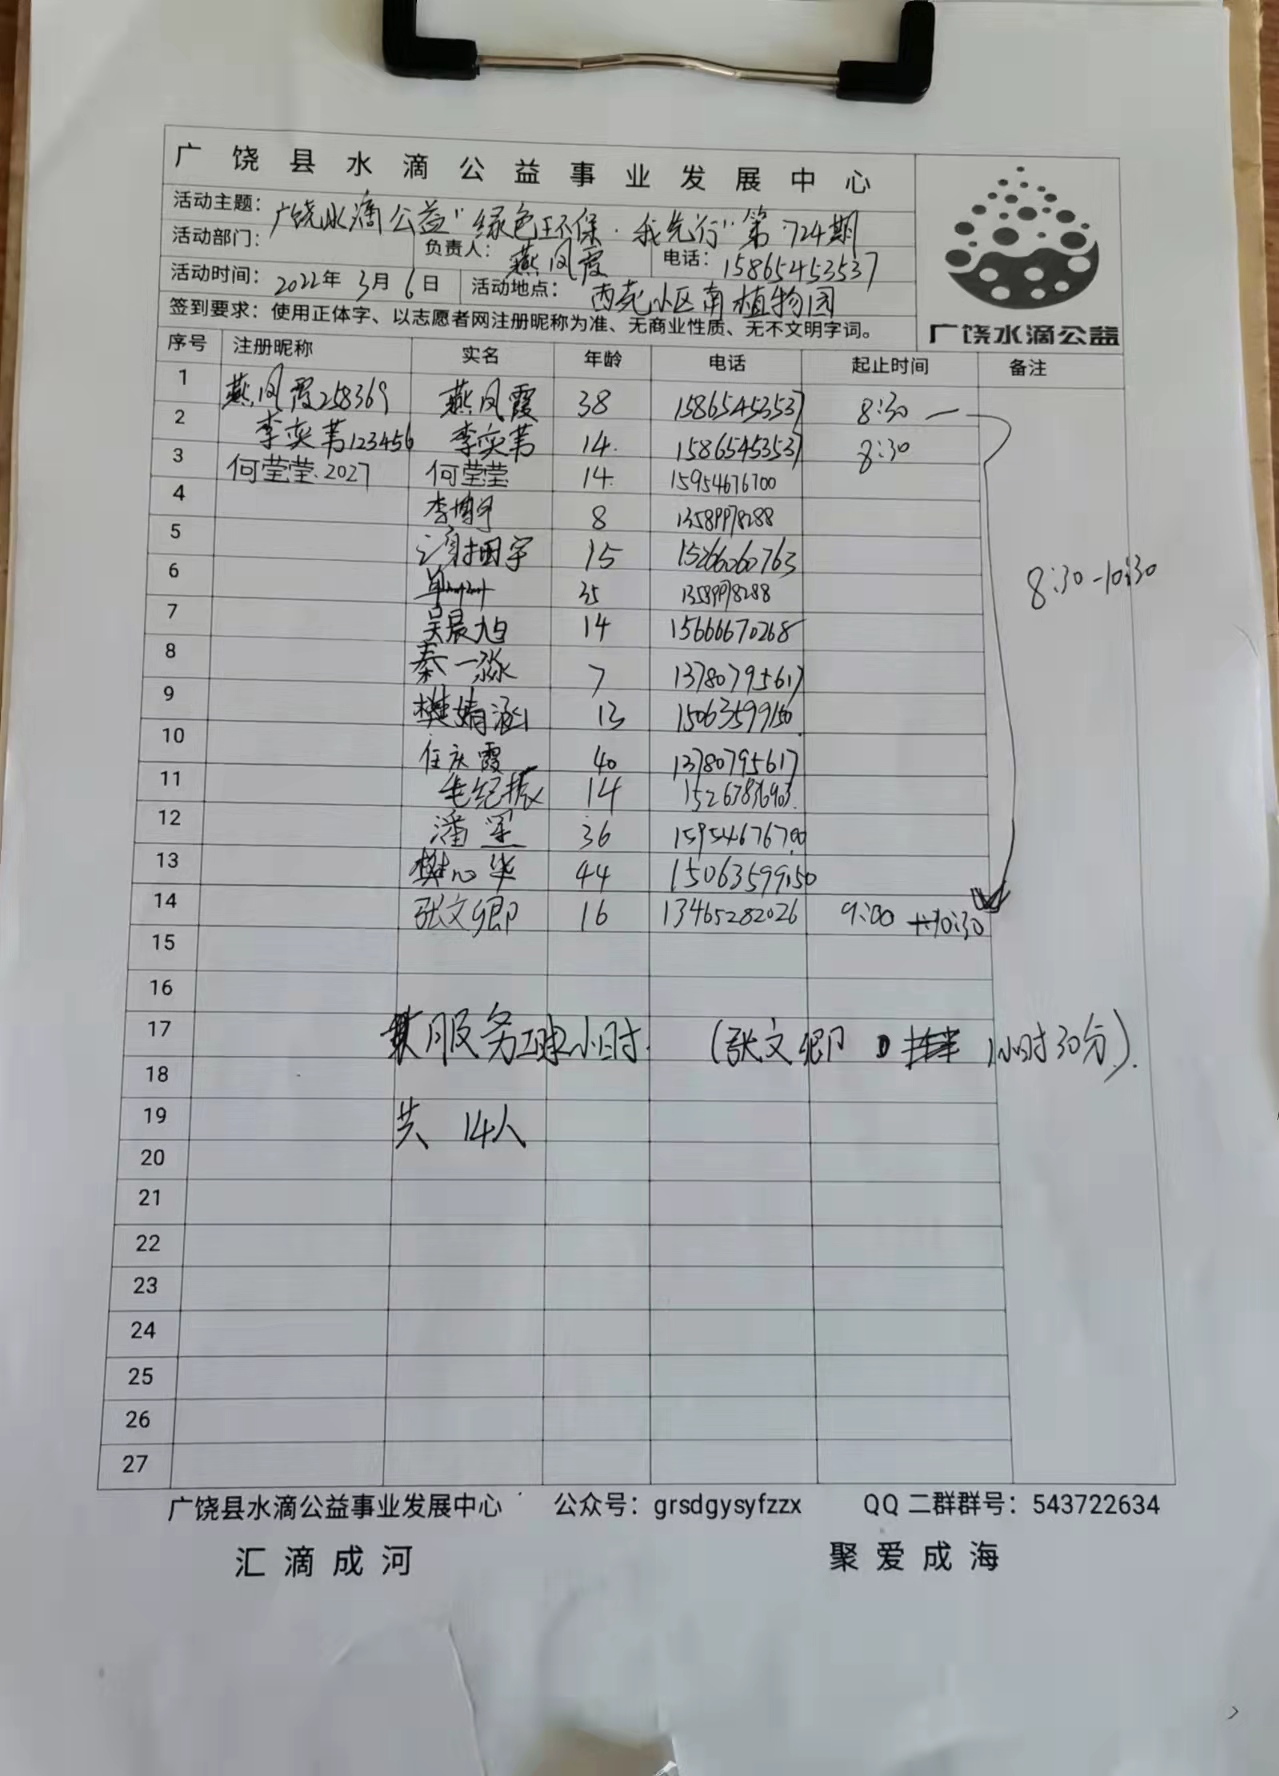 广饶县水滴公益事业发展中心
活动主题：广饶水滴公益"绿色环保·我先行"第724期
活动部门： 负责人：燕凤霞 电话：15865453537
活动时间：2022年3月6日 活动地点：西苑小区南植物园
签到要求：使用正体字、以志愿者网注册昵称为准、无商业性质、无不文明字词。
广饶水滴公益
序号 注册昵称 实名 年龄 电话 起止时间 备注
1 燕凤霞258369 燕凤霞 38 15865453537 8:30 —
2 李奕苇123456 李奕苇 14. 15865453537 8:30
3 何莹莹.2027 何莹莹 14. 15954676700
4 李博宇 8 13589978288
5 宇 15 15266060763
8:30-10:30
6 单 35 13589978288
7 吴晨旭 14 15666670268
8 秦一淼 7 13780795617
9 樊婧涵 13 15063599150
10 任庆霞 40 13780795617
11 毛纪振 14
12 潘军 36 15954676700
13 樊心华 44 15063599150
14 张文卿 16 13465282026 9:00 10:30
15
16
17 服务 小时. (张文卿 1小时30分).
18
19 共 14人
20
21
22
23
24
25
26
27
广饶县水滴公益事业发展中心 公众号：grsdgysyfzzx QQ 二群群号：543722634
汇滴成河 聚爱成海